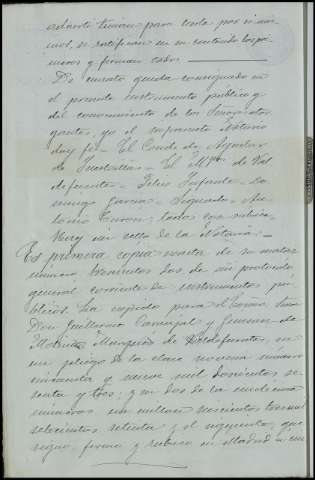 advertí tienen para leerla por sí mis-
mos, se ratifican en su contenido los pri-
meros y firman todos
De cuanto queda consignado en
el presente instrumento público y
del conocimiento de los Señores otor-
gantes, yo el infrascrito Notario
doy fe = El Conde de Aguilar
de Inestrillas = El M.qs de Val
defuentes = Felix Infante = Do-
mingo Garcia = Signado = An-
tonio Turon: todos con rúbrica.
Hay un sello de la Notaría =
Es primera copia exacta de su matriz
número trescientos dos de mi protocolo
general corriente de instrumentos pú-
blicos. La expido para el Excmo. Señor
Don Guillermo Carvajal y Jimenez de
Molina Marqués de Valdefuentes, en
un pliego de la clase novena número
cincuenta y nueve mil doscientos se-
senta y tres; y en dos de la undécima
números un millon trescientos tres mil
setecientos setenta y el siguiente, que
signo, firmo y rubrico en Madrid a cin